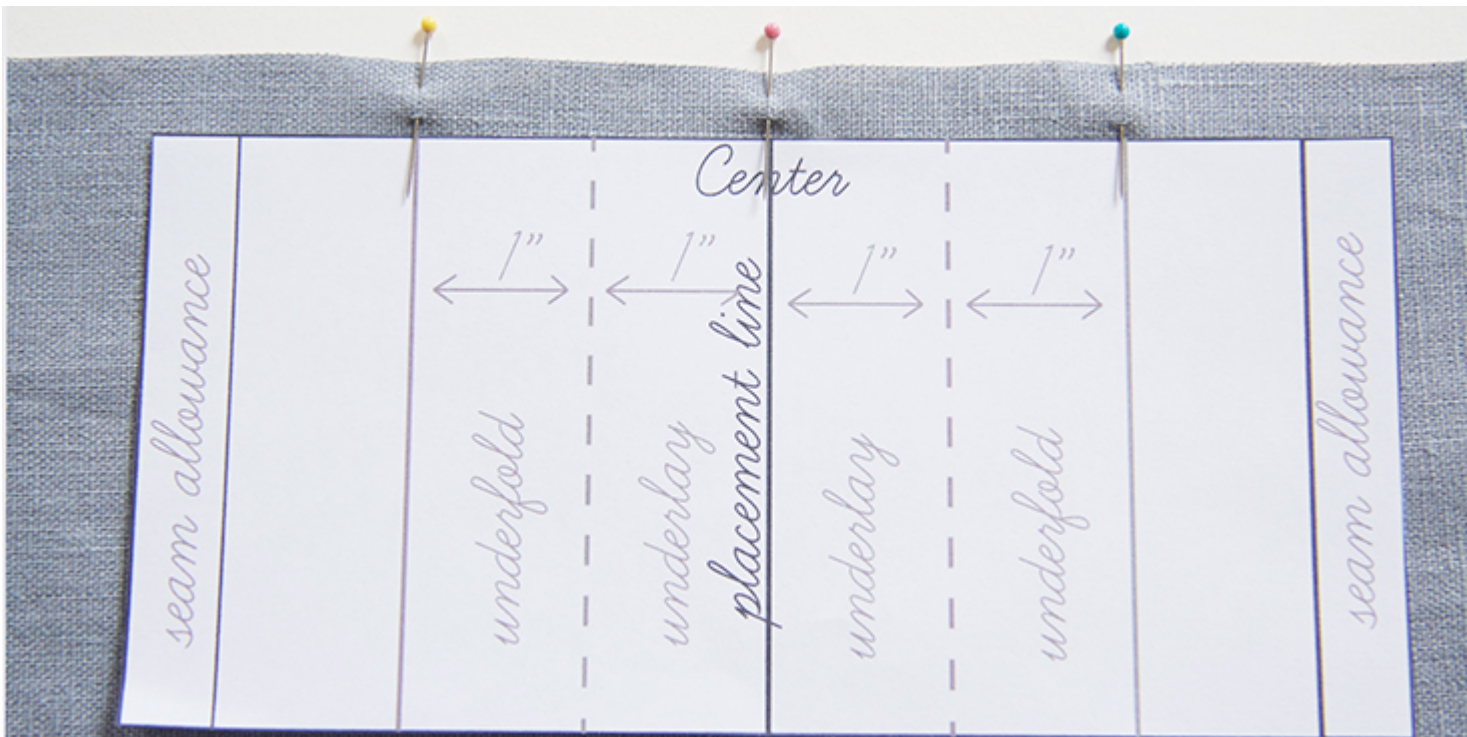 Center
1”
1”
1”
1”
seam allowance
underfold
underlay
placement line
underlay
underfold
seam allowance